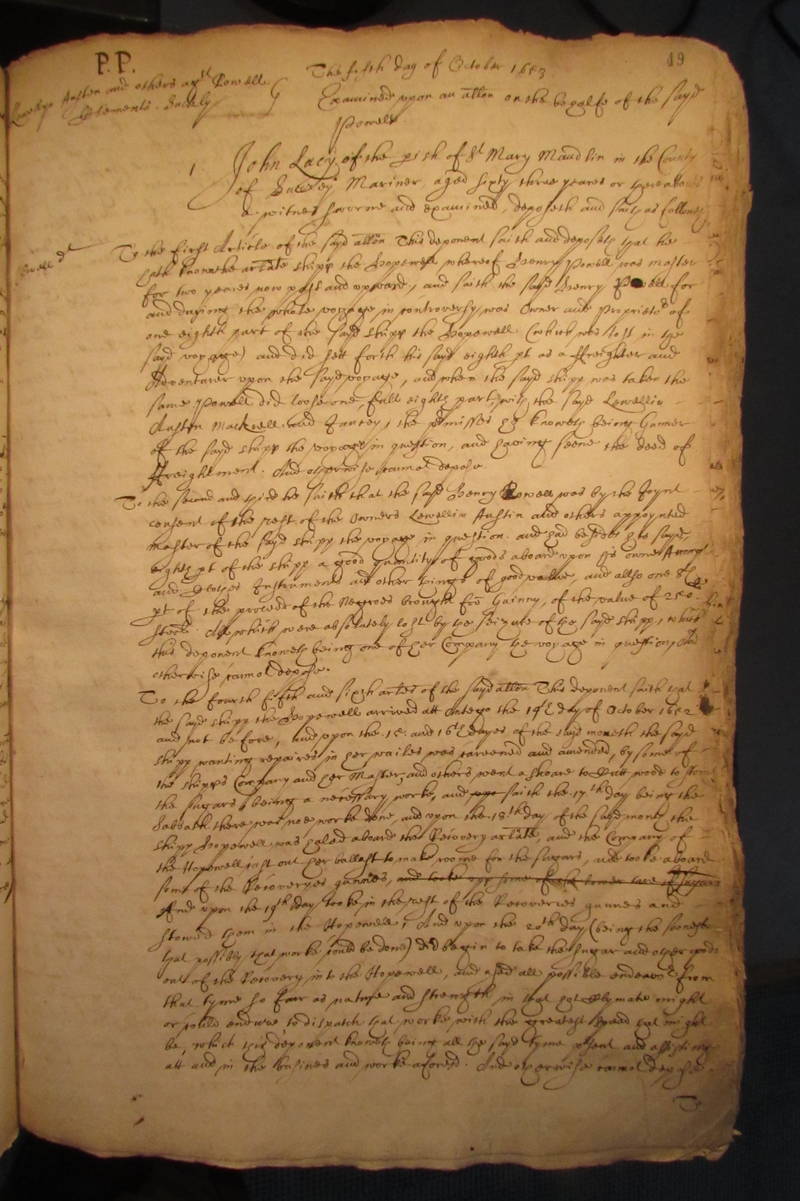 P.P.
19
The fifth day of October 1653
Lewellyn Austen and others agt Powell
Clements. Suckly
Examined upon an allon on the behalfe of the sayd
Powell
1
John Lacy of the pish of St Mary Maudlin in the County
of Surrey Mariner, aged sixty three yeares or thereabouts
a witnes sworne and examined, deposeth and saith as followeth
To the first Article of the sayd allon This deponent saith and deposeth that he
hath knowne the arlate shipp the Hopewell whereof Henry Powell was master
for two yeares now past and upward, and saith the sayd Henry Powell for
and during the whole voyage in controversy, was Owner and Proprietor of
one eighth part of the sayd shipp the Hopewell (which was lost in the
sayd voyage) and did sett forth his sayd eighth pt as a Freighter and
Adventurer upon the sayd voyage, and when the sayd shipp was taken the
same Powell did loose one full eighth part, with the sayd Lewellin
Austin Mackrell and the premisses hee knoweth being Gunner
of the sayd shipp the voyage in question, and having seene the deed of
Freightment. And otherwise cannot depose
To the second and third he saith that the sayd Henry Powell was by the Joynt
consent of the rest of the Owners Lewellin Austin and others appoynted
master of the sayd shipp the voyage in question. and had besides his sayd
eighth pt of the shipp a good quantity of goods aboard upon his owne Accompt
and Instruments and other things of good vallue, and allso one
pt of the proceed of the Negroes brought fro Guinny, of the value of
All which were absolutely lost by the seizure of the sayd shipp, which
this deponent knoweth being one of her Company the voyage in question, And
otherwise cannot depose.
To the fourth fifth and sixth arles of the sayd allon This deponent saith that
the sayd shipp the Hopewell arrived att Antego the 14th day of October 1652
and not before, And upon the 15 and 16th dayes of the sayd moneth the sayd
shipp wanting repaires in her wailes was careened and amended, by some of
the shipps Company and her Master, and others went ashoare to Cutt wood to stow
the sugars, being a necessary worke, and saith the 17th day being the
Sabbath there was noe worke done, and upon the 18th day of the said month the
shipp Hopewell was haled aboard the Recovery arlate, and the Company of
the Hopewell cast out her ballast to make roome for the sugars, and tooke aboard
some of the Recoveryes gunnes, and tooke
And upon the 19th day tooke in the rest of the Recoveries gunnes and
stowed them in the Hopewell; And upon the 20th day (being the soonest
that possibly that worke could be done) did begin to take the sugar and other goods
out of the Recovery into the Hopewell, and used all possible endeavor from
that tyme so farr as nature and strength in that hot Clymate might
or could endure, to dispatch that worke with the greatest speed that might
be, which this deponent knoweth being all the sayd tyme psent and assisting
att and in the busines and worke aforesd. And otherwise cannot depose.
To